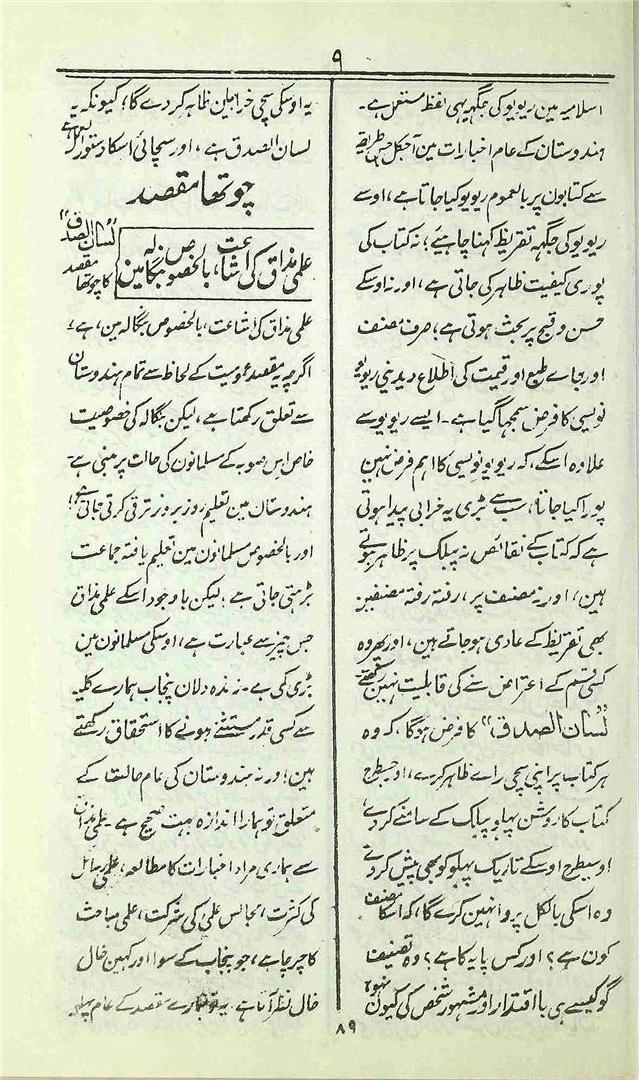 ۹
اسلامیہ مین ریویو کی جگہہ یہی لفظ مستعمل ہے۔
ہندوستان کے عام اخبارات مین آجکل جس طریقہ
سے کتابون پر بالعموم ریویو کیا جاتا ہے، اوسے
ریویو کی جگہہ تقریظ کہنا چاہیے؛ نہ کتاب کی
پوری کیفیت ظاہر کی جاتی ہے، اور نہ اوسکے
حسن و قبح پر بحث ہوتی ہے؛ صرف مصنف
اور جاے طبع اور قیمت کی اطلاع دیدینی ریویو
نویسی کا فرض سمجہا گیا ہے۔ ایسے ریویو سے
علاوہ اسکے، کہ ریویو نویسی کا اہم فرض نہین
پورا کیا جاتا، سب سے بڑی یہ خرابی پیدا ہوتی
ہے کہ کتاب کے نقائص نہ پبلک پر ظاہر ہوتے
ہین، اور نہ مصنف پر، رفتہ رفتہ مصنفین
بھی تقریظ کے عادی ہوجاتے ہین، اور پھر وہ
کسی قسم کے اعتراض سننے کی قابلیت نہین رکھتے
"لسان الصدق" کا فرض ہوگا، کہ وہ
ہر کتاب پر اپنی سچی راے ظاہر کرے، اور جسطرح
کتاب کا روشن پہلو پبلک کے سامنے کردے
اوسیطرح اوسکے تاریک پہلو کو بھی پیش کردے
وہ اسکی بالکل پروا نہین کرے گا، کہ اسکا مصنف
کون ہے؟ اور کس پایہ کا ہے؟ وہ تصنیف
گو کیسے ہی با اقتدار اور مشہور شخص کی کیون نہو؛
یہ اوسکی سچی خرابیان ظاہر کردے گا؛ کیونکہ یہ
لسان الصدق ہے، اور سچائی اسکا دستور العمل ہے
چوتھا مقصد
علمی مذاق کی اشاعت، بالخصوص بنگالہ مین
"لسان الصدق" کا چوتھا مقصد
علمی مذاق کی اشاعت، بالخصوص بنگالہ مین، ہے؛
اگرچہ یہ مقصد عمومیت کے لحاظ سے تمام ہندوستان
سے تعلق رکھتا ہے، لیکن بنگالہ کی خصوصیت
خاص اس صوبہ کے مسلمانون کی حالت پر مبنی ہے۔
ہندوستان مین تعلیم روز بروز ترقی کرتی جاتی ہے؛
اور بالخصوص مسلمانون مین تعلیم یافتہ جماعت
بڑہتی جاتی ہے؛ لیکن باوجود اسکے علمی مذاق
جس چیز سے عبارت ہے، اوسکی مسلمانون مین
بڑی کمی ہے۔ زندہ دلان پنجاب ہمارے کلیہ
سے کسی قدر مستثنے ہونے کا استحقاق رکھتے
ہین؛ ورنہ ہندوستان کی عام حالت کے
متعلق تو ہمارا اندازہ بہت صحیح ہے۔ علمی مذاق
سے ہماری مراد اخبارات کا مطالعہ، علمی رسائل
کی کثرت، مجالس علمی کی شرکت، علمی مباحث
کا چرچا ہے، جو پنجاب کے سوا اور کہین خال
خال نظر آتا ہے۔ یہ تو ہمارے مقصد کے عام پہلو
۸۹